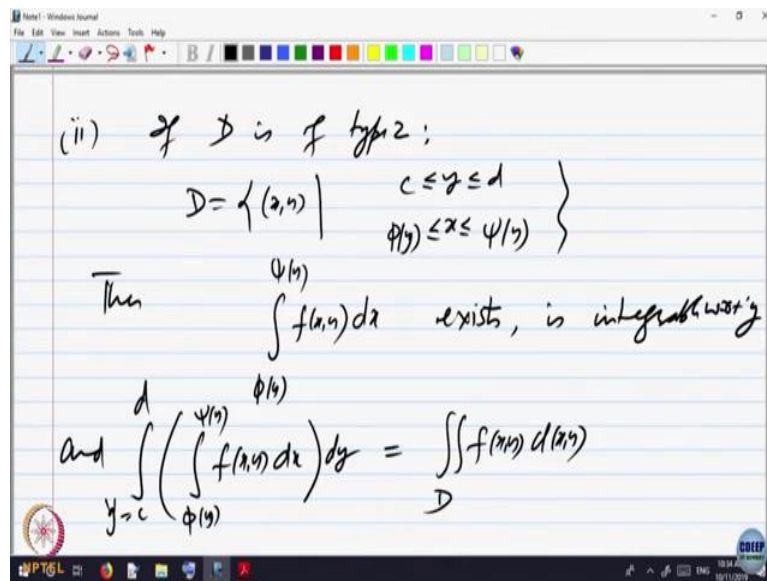 Note1 - Windows Journal
File Edit View Insert Actions Tools Help
B I
(ii) If D is of type 2:
D = { (x,y) | c ≤ y ≤ d
φ(y) ≤ x ≤ ψ(y) }
Then ∫_{φ(y)}^{ψ(y)} f(x,y) dx exists, is integrable w.r.t. y
and ∫_{y=c}^{d} ( ∫_{φ(y)}^{ψ(y)} f(x,y) dx ) dy = ∬_D f(x,y) d(x,y)
NPTEL
CDEEP
ENG
10/11/2019